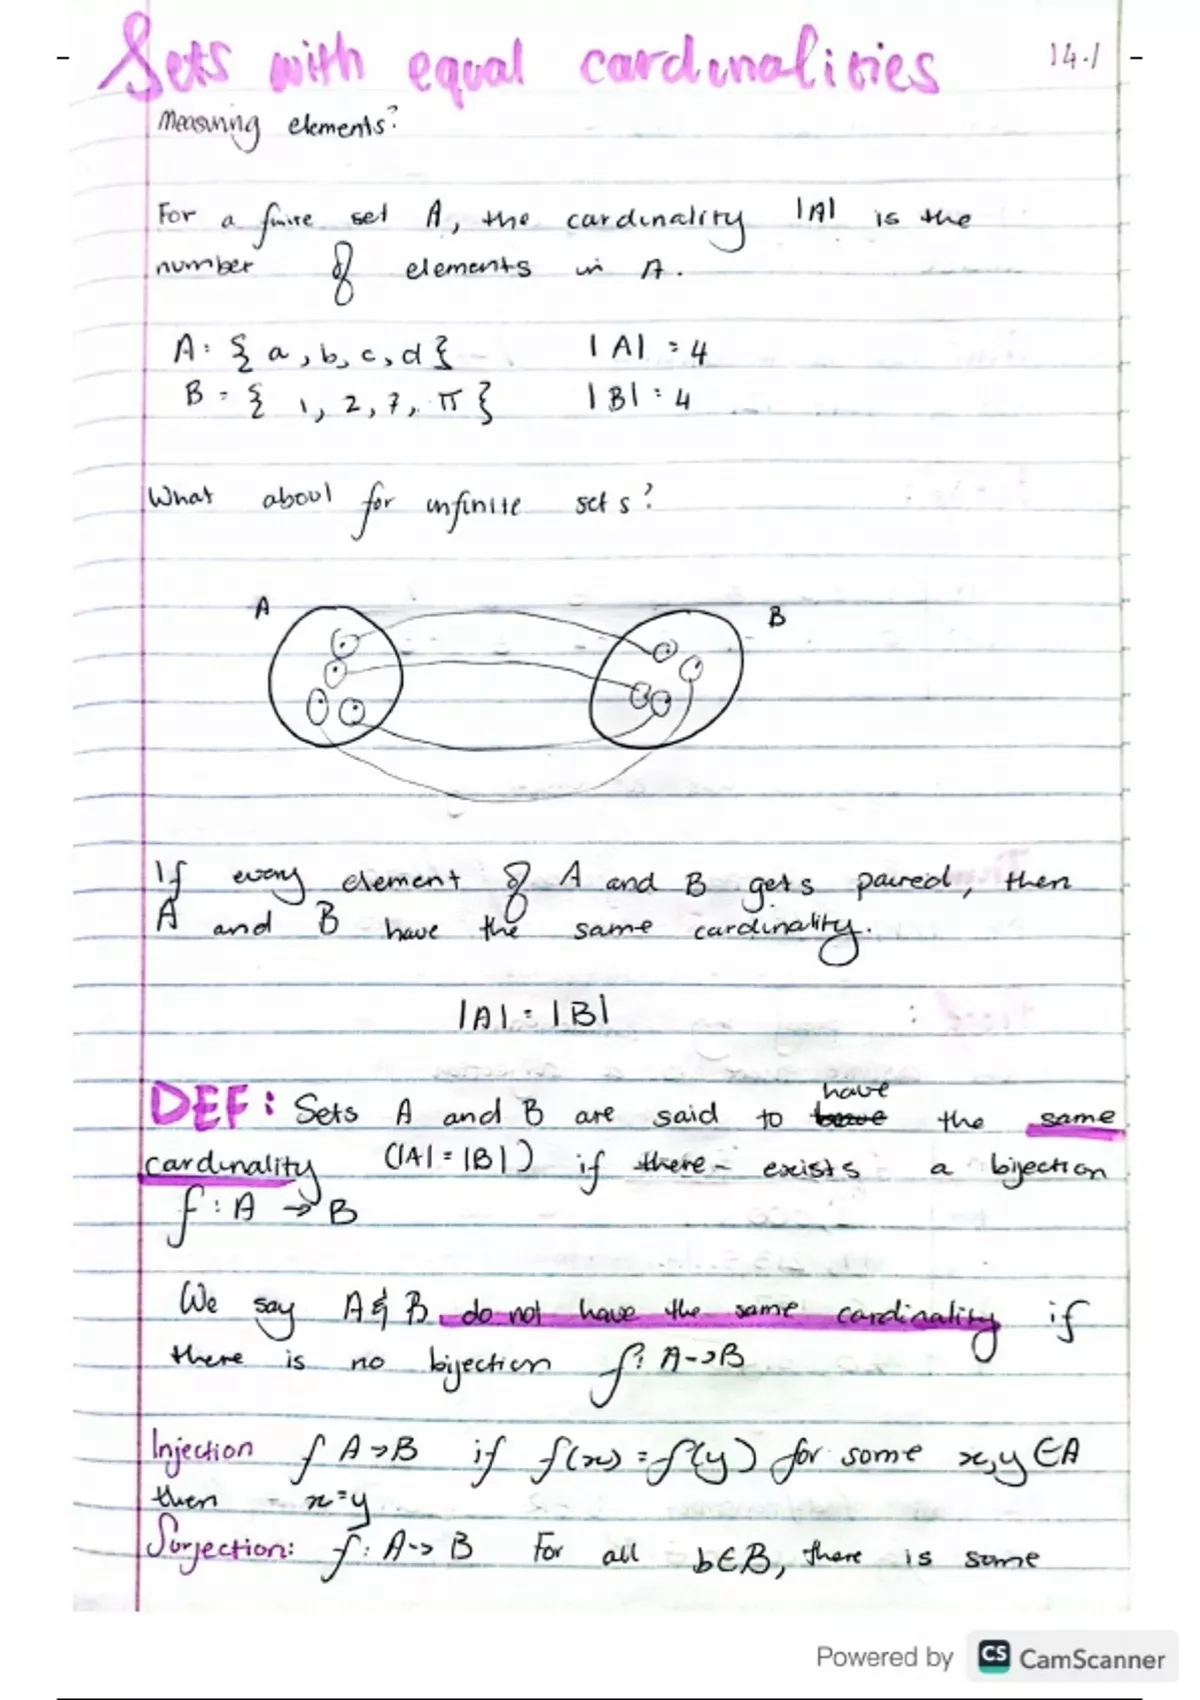 Sets with equal cardinalities 14.1
Measuring elements?
For a finite set A, the cardinality |A| is the
number of elements in A.
A = { a, b, c, d } |A| = 4
B = { 1, 2, 7, π } |B| = 4
What about for infinite sets?
A B
If every element of A and B gets paired, then
A and B have the same cardinality.
|A| = |B|
have
DEF: Sets A and B are said to the same
cardinality (|A| = |B|) if there exists a bijection
f : A → B
We say A & B do not have the same cardinality if
there is no bijection f: A → B
Injection f A → B if f(x) = f(y) for some x, y ∈ A
then x = y
Surjection: f : A → B For all b ∈ B, there is some
Powered by CS CamScanner